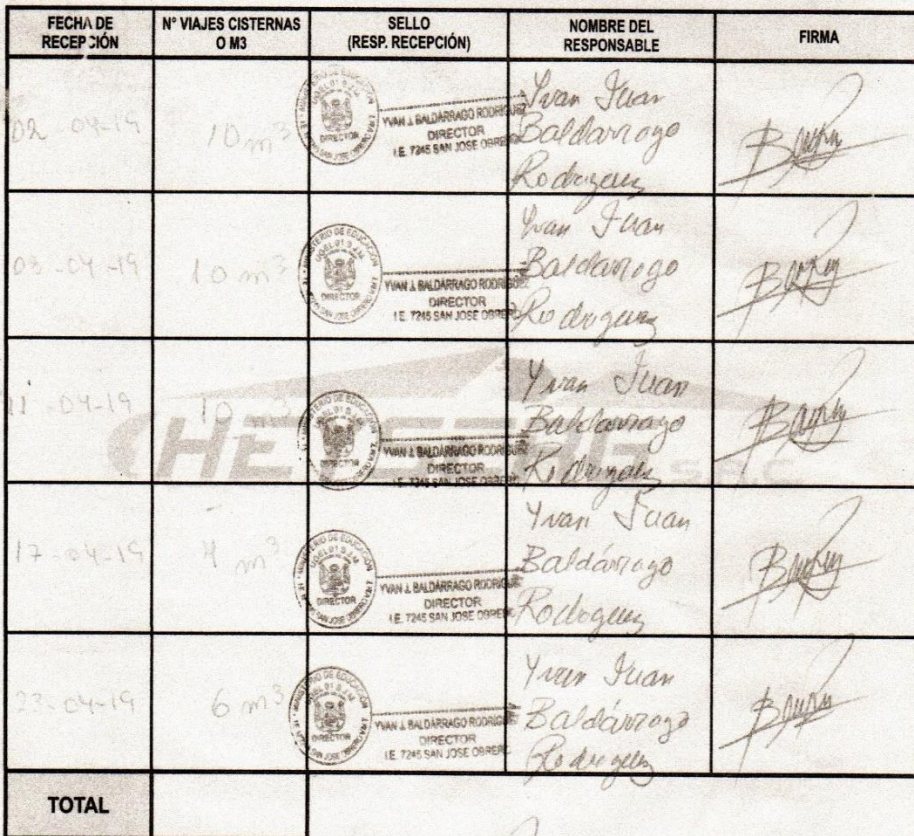 FECHA DE RECEPCIÓN
N° VIAJES CISTERNAS O M3
SELLO (RESP. RECEPCIÓN)
NOMBRE DEL RESPONSABLE
FIRMA
02-04-19
10 m³
MINISTERIO DE EDUCACIÓN
UGEL 01 S.J.M.
DIRECTOR
YVAN J. BALDÁRRAGO RODRIGUEZ
DIRECTOR
I.E. 7245 SAN JOSE OBRERO
Yvan Juan
Baldarrago
Rodriguez
03-04-19
10 m³
MINISTERIO DE EDUCACIÓN
UGEL 01 S.J.M.
DIRECTOR
YVAN J. BALDÁRRAGO RODRIGUEZ
DIRECTOR
I.E. 7245 SAN JOSE OBRERO
Yvan Juan
Baldarrago
Rodriguez
11-04-19
10 m³
MINISTERIO DE EDUCACIÓN
UGEL 01 S.J.M.
DIRECTOR
YVAN J. BALDÁRRAGO RODRIGUEZ
DIRECTOR
I.E. 7245 SAN JOSE OBRERO
Yvan Juan
Baldarrago
Rodriguez
17-04-19
4 m³
MINISTERIO DE EDUCACIÓN
UGEL 01 S.J.M.
DIRECTOR
YVAN J. BALDÁRRAGO RODRIGUE
DIRECTOR
I.E. 7245 SAN JOSE OBRERO
Yvan Juan
Baldárrago
Rodriguez
23-04-19
6 m³
MINISTERIO DE EDUCACIÓN
UGEL 01 S.J.M.
DIRECTOR
YVAN J. BALDÁRRAGO RODRIGUE
DIRECTOR
I.E. 7245 SAN JOSE OBRERO
Yvan Juan
Baldárrago
Rodriguez
TOTAL